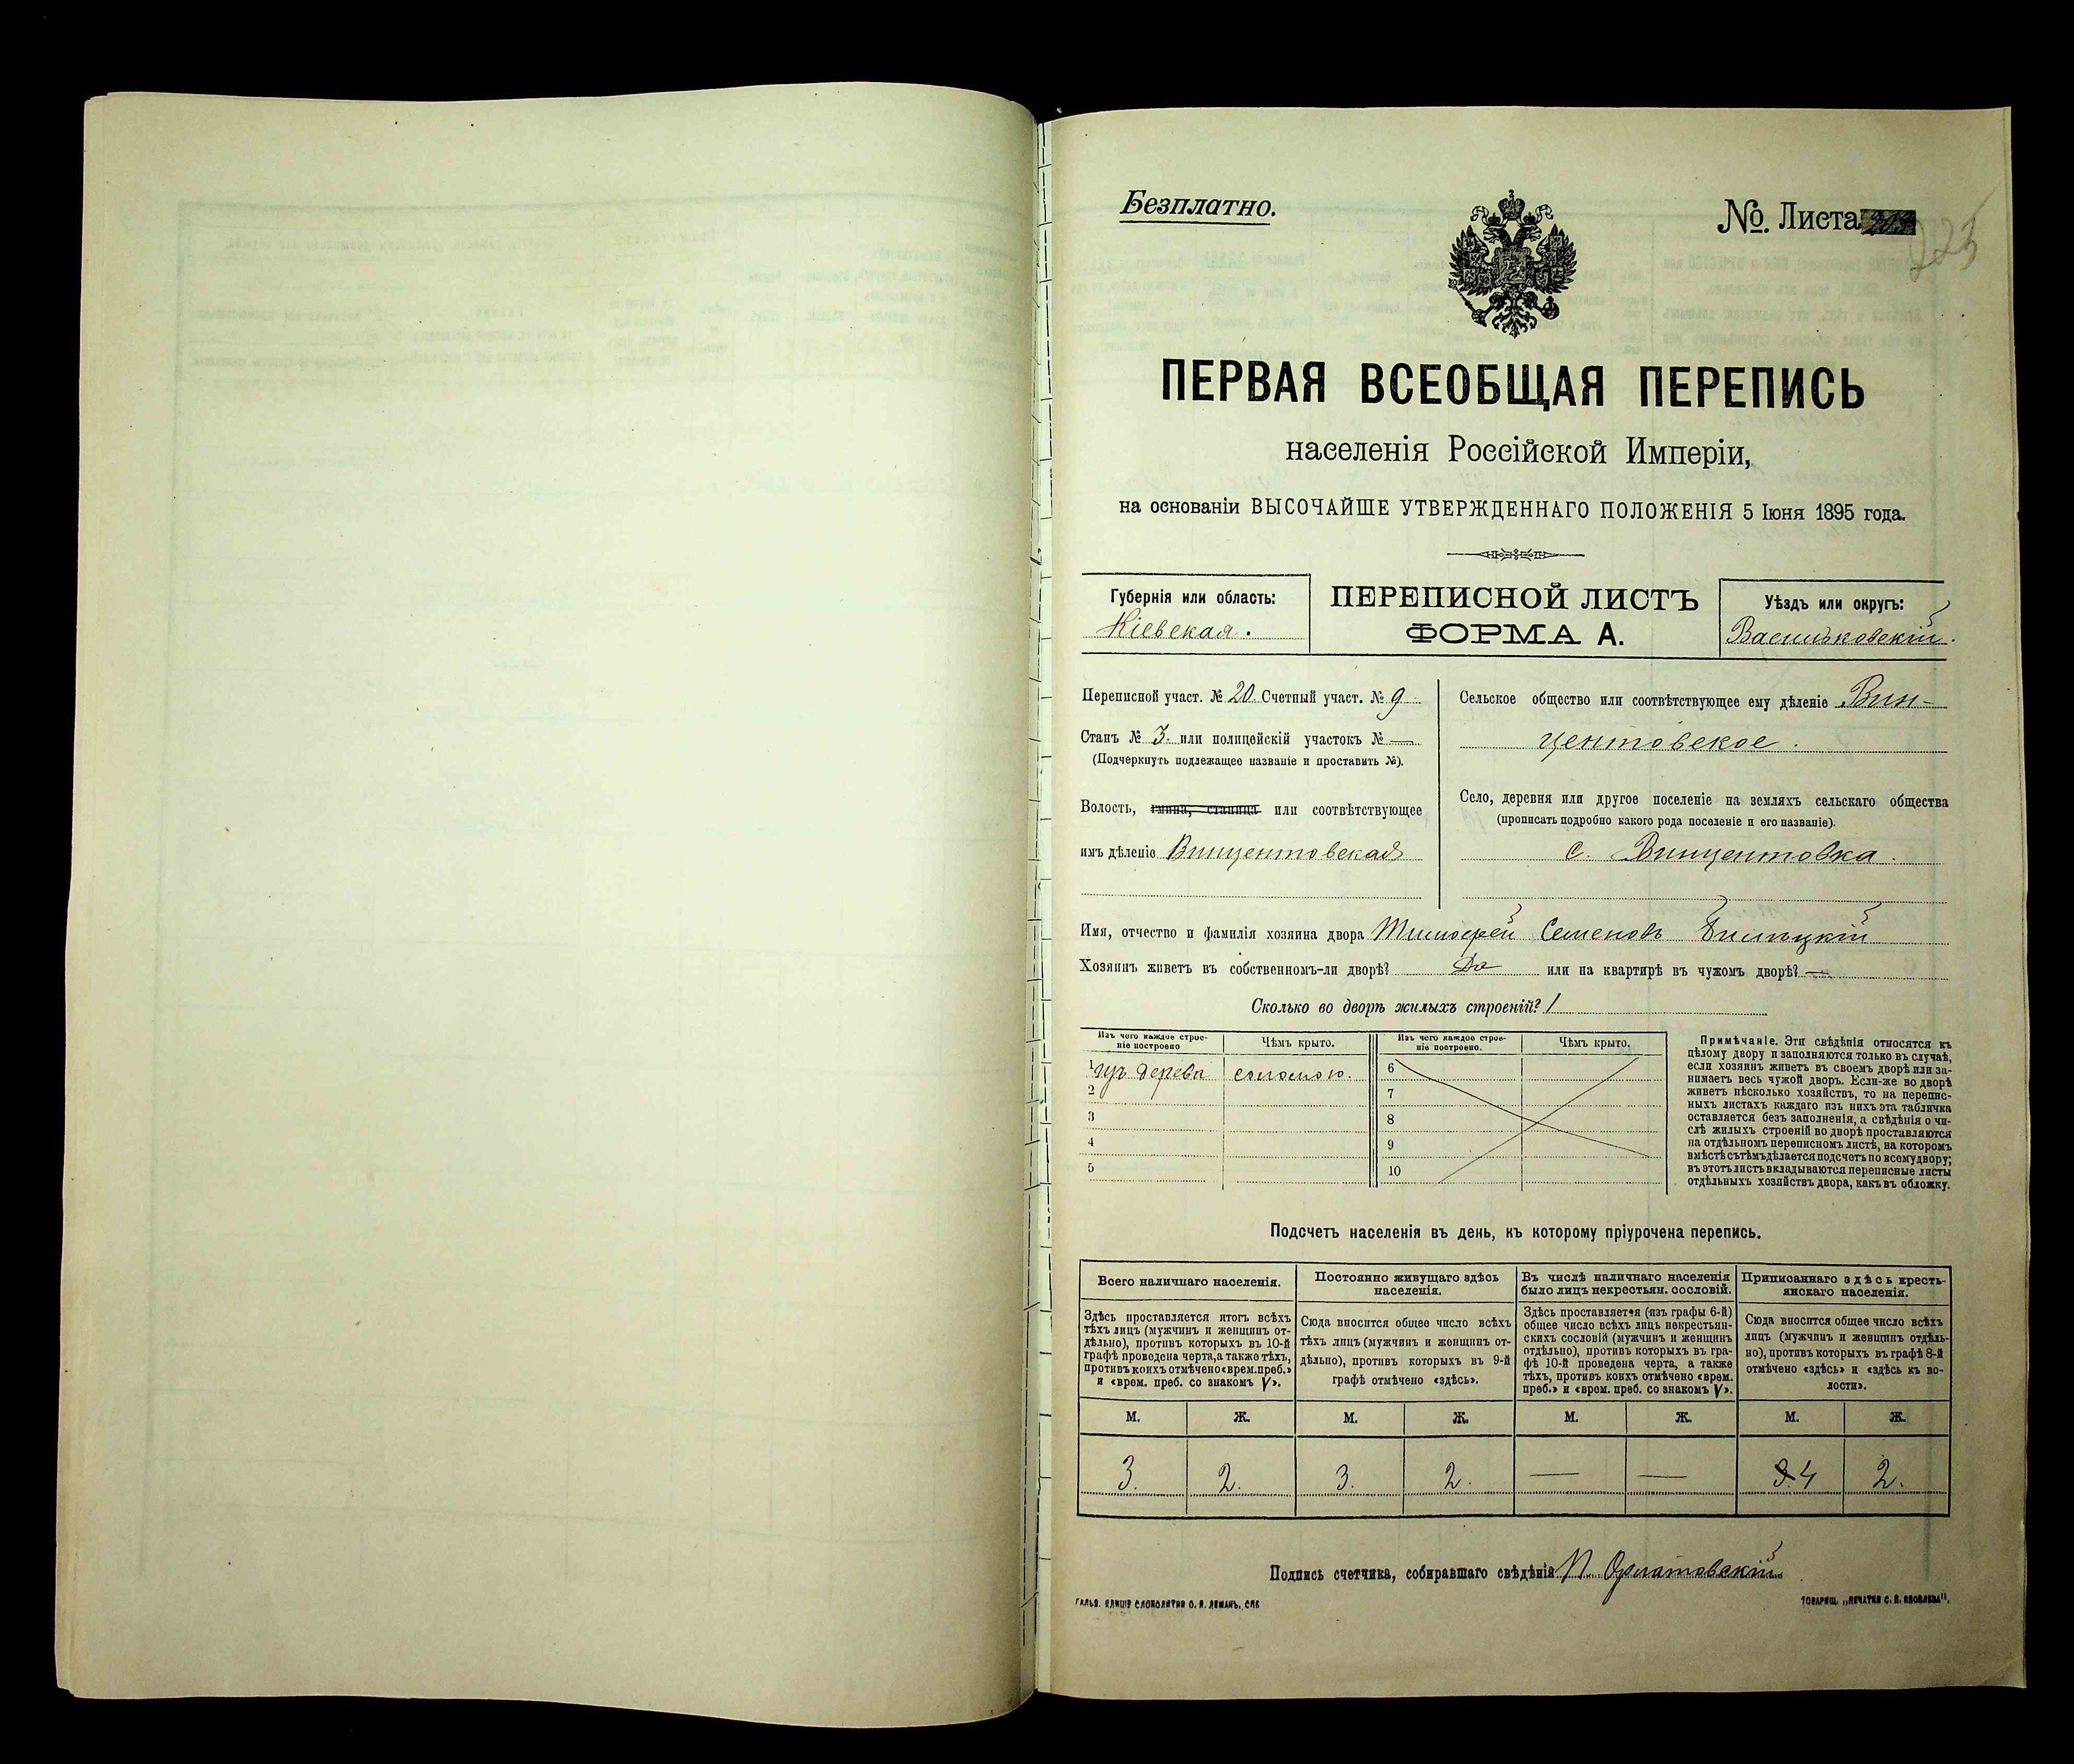 Безплатно.
№. Листа 203
223
ПЕРВАЯ ВСЕОБЩАЯ ПЕРЕПИСЬ
населенія Россійской Имперіи,
на основаніи ВЫСОЧАЙШЕ УТВЕРЖДЕННАГО ПОЛОЖЕНІЯ 5 Іюня 1895 года.
Губернія или область:
Кіевская.
ПЕРЕПИСНОЙ ЛИСТЪ
ФОРМА А.
Уѣздъ или округъ:
Васильковскій.
Переписной участ. № 20. Счетный участ. № 9
Станъ № 3. или полицейскій участокъ № —
(Подчеркнуть подлежащее названіе и проставить №).
Волость, гмина, станица или соотвѣтствующее
имъ дѣленіе Винцентовская
Сельское общество или соотвѣтствующее ему дѣленіе Вин-
центовское.
Село, деревня или другое поселеніе на земляхъ сельскаго общества
(прописать подробно какого рода поселеніе и его названіе).
с. Винцентовка.
Имя, отчество и фамилія хозяина двора Тимофей Семеновъ Билецкій
Хозяинъ живетъ въ собственномъ-ли дворѣ? Да или на квартирѣ въ чужомъ дворѣ? —
Сколько во дворѣ жилыхъ строеній? 1
Изъ чего каждое строе-
ніе построено
Чѣмъ крыто.
Изъ чего каждое строе-
ніе построено.
Чѣмъ крыто.
1 изъ дерева соломою.
2
3
4
5
6
7
8
9
10
Примѣчаніе. Эти свѣдѣнія относятся къ
цѣлому двору и заполняются только въ случаѣ,
если хозяинъ живетъ въ своемъ дворѣ или за-
нимаетъ весь чужой дворъ. Если-же во дворѣ
живетъ нѣсколько хозяйствъ, то на перепис-
ныхъ листахъ каждаго изъ нихъ эта табличка
оставляется безъ заполненія, а свѣдѣнія о чи-
слѣ жилыхъ строеній во дворѣ проставляются
на отдѣльномъ переписномъ листѣ, на которомъ
вмѣстѣ съ тѣмъ дѣлается подсчетъ по всему двору;
въ этотъ листъ вкладываются переписные листы
отдѣльныхъ хозяйствъ двора, какъ въ обложку.
Подсчетъ населенія въ день, къ которому пріурочена перепись.
Всего наличнаго населенія.
Здѣсь проставляется итогъ всѣхъ
тѣхъ лицъ (мужчинъ и женщинъ от-
дѣльно), противъ которыхъ въ 10-й
графѣ проведена черта, а также тѣхъ,
противъ коихъ отмѣчено «врем. преб.»
и «врем. преб. со знакомъ V».
Постоянно живущаго здѣсь
населенія.
Сюда вносится общее число всѣхъ
тѣхъ лицъ (мужчинъ и женщинъ от-
дѣльно), противъ которыхъ въ 9-й
графѣ отмѣчено «здѣсь».
Въ числѣ наличнаго населенія
было лицъ некрестьян. сословій.
Здѣсь проставляется (изъ графы 6-й)
общее число всѣхъ лицъ некрестьян-
скихъ сословій (мужчинъ и женщинъ
отдѣльно), противъ которыхъ въ гра-
фѣ 10-й проведена черта, а также
тѣхъ, противъ коихъ отмѣчено «врем.
преб.» и «врем. преб. со знакомъ V».
Приписаннаго здѣсь кресть-
янскаго населенія.
Сюда вносится общее число всѣхъ
лицъ (мужчинъ и женщинъ отдѣль-
но), противъ которыхъ въ графѣ 8-й
отмѣчено «здѣсь» и «здѣсь къ во-
лости».
М. Ж. М. Ж. М. Ж. М. Ж.
3. 2. 3. 2. — — 3. 4 2.
Подпись счетчика, собиравшаго свѣдѣнія
ТОВАРИЩ. „ПЕЧАТНЯ С. П. ЯКОВЛЕВА“.